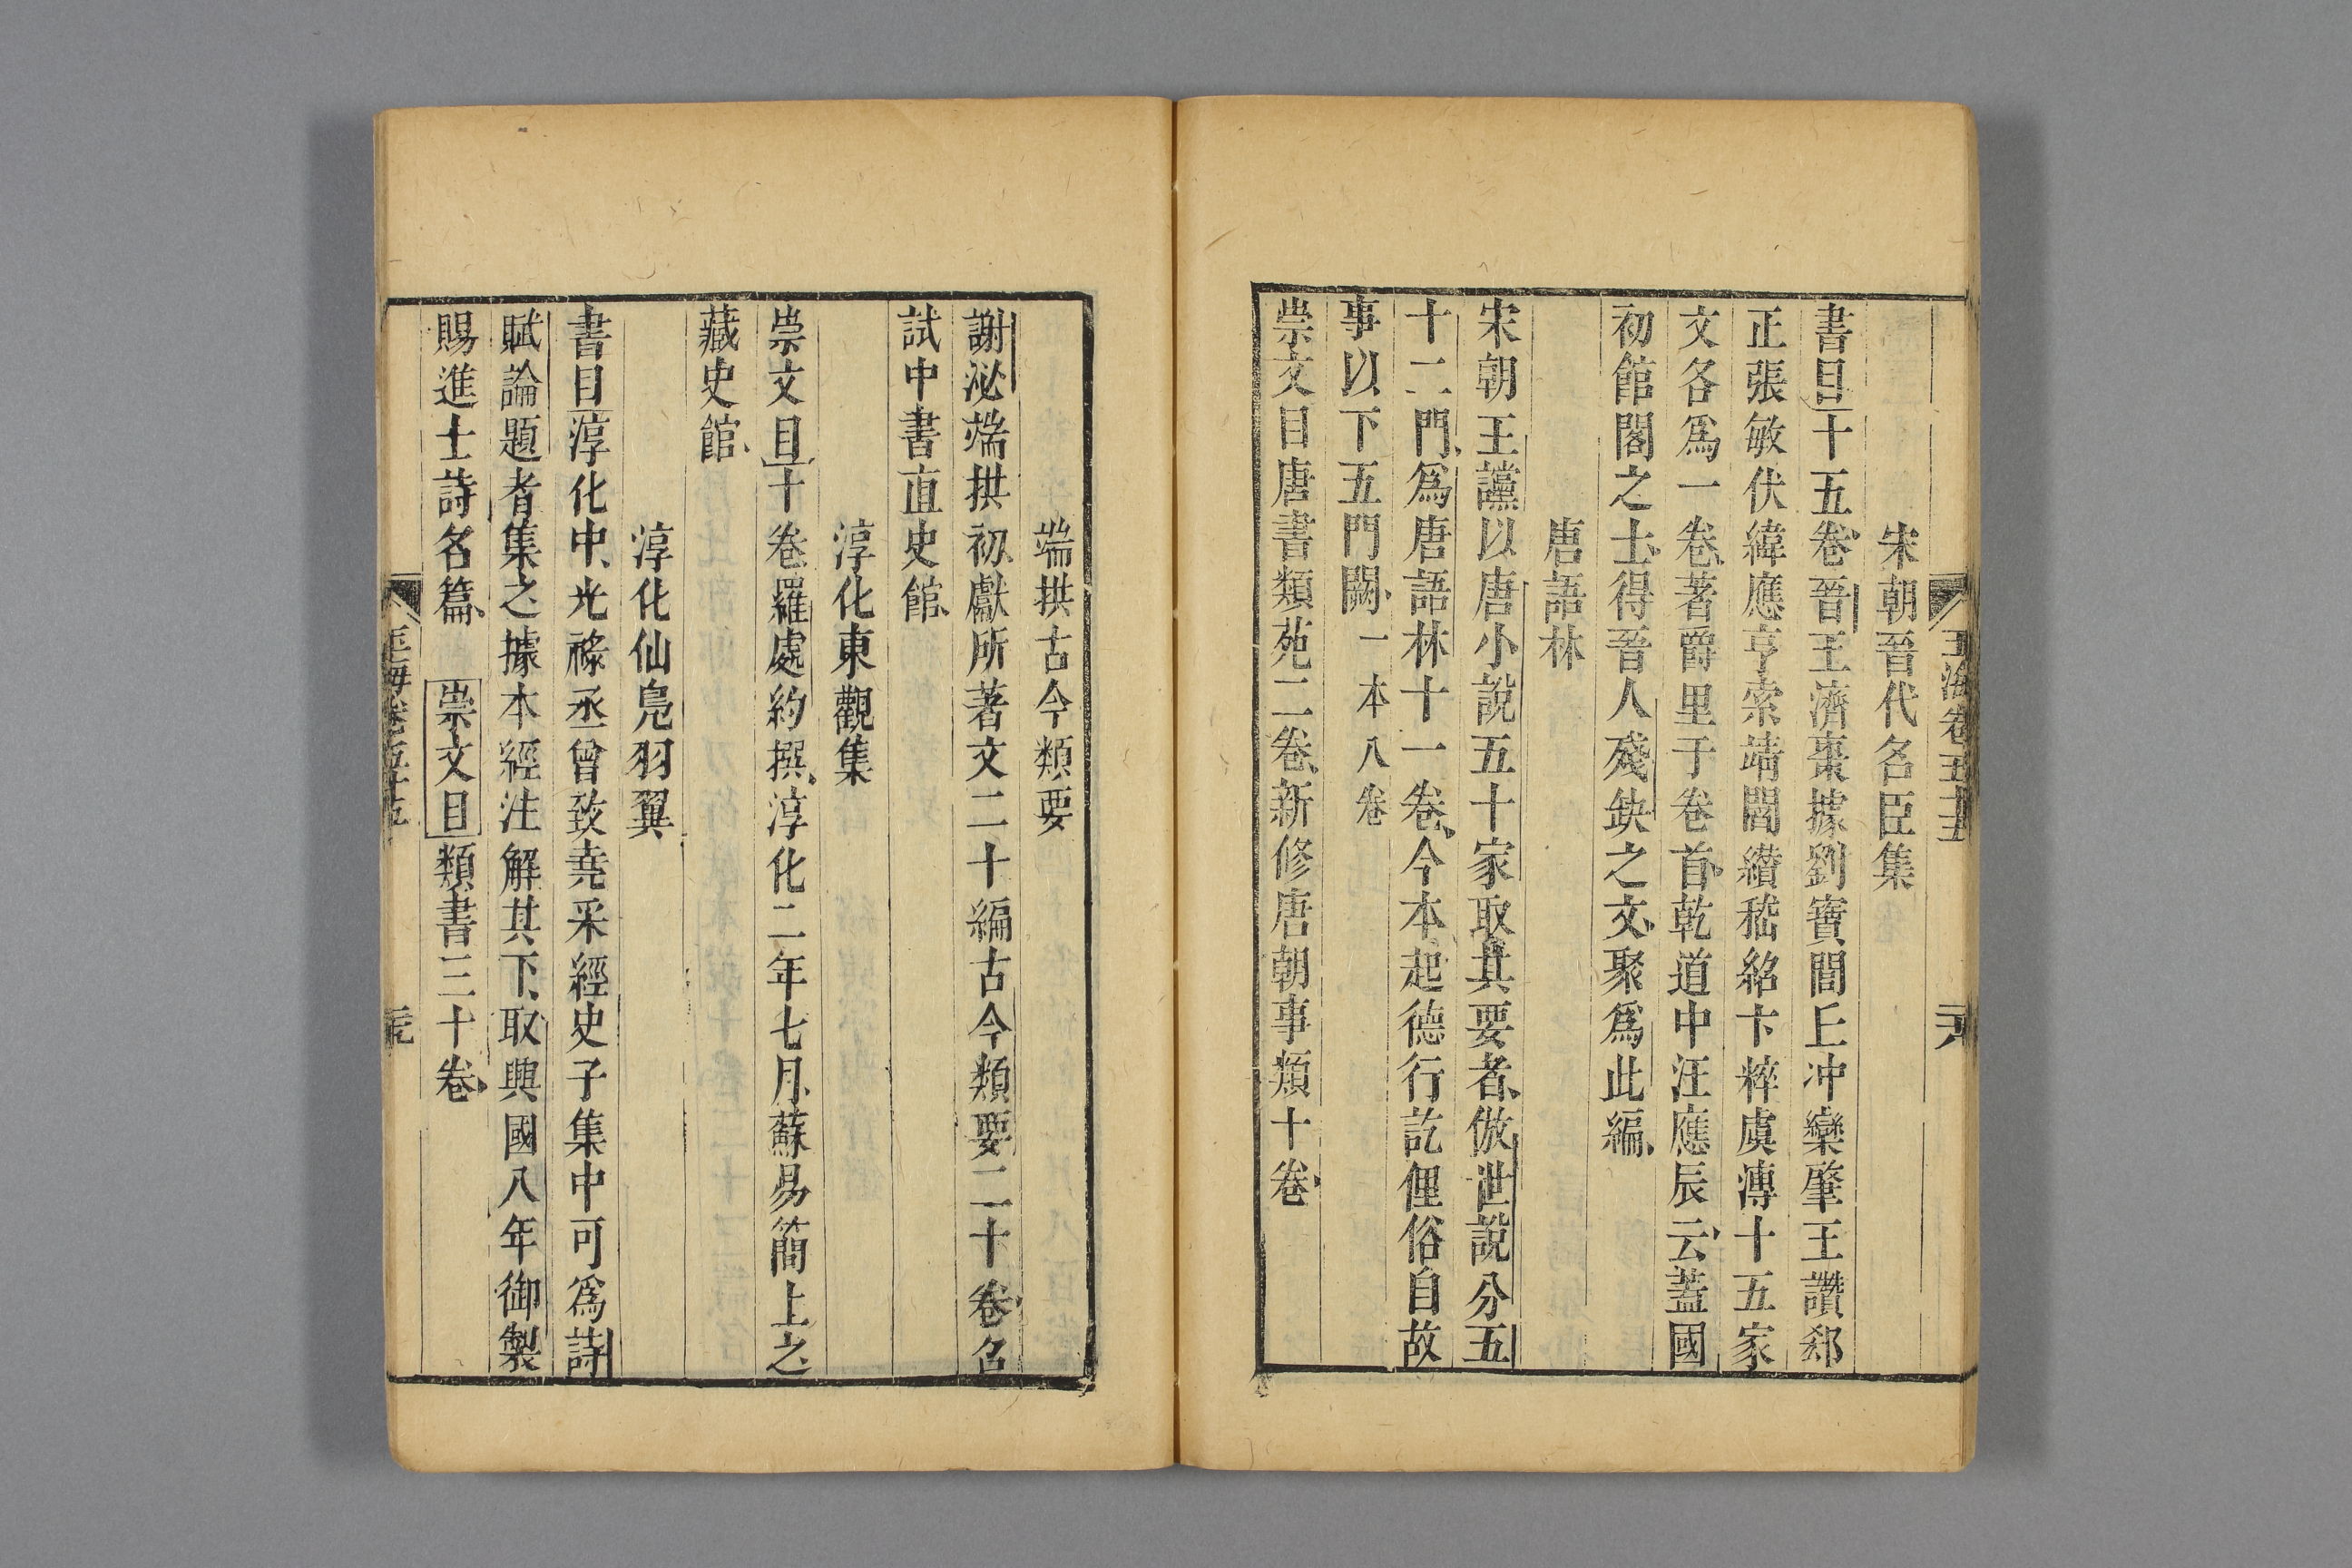 玉海卷五十五
宋朝晉代名臣集
書目十五卷晉王濟棗據劉寶閭丘冲欒肇王讚郄
正張敏伏緯應亨索靖閻纘嵇紹卞粹虞溥十五家
文各爲一卷著爵里于卷首乾道中汪應辰云蓋國
初館閣之士得晉人殘缺之文聚爲此編
唐語林
宋朝王讜以唐小說五十家取其要者倣世說分五
十二門爲唐語林十一卷今本起德行訖俚俗自故
事以下五門闕一本八卷
崇文目唐書類苑二卷新修唐朝事類十卷
端拱古今類要
謝泌端拱初獻所著文二十編古今類要二十卷召
試中書直史館
淳化東觀集
崇文目十卷羅處約撰淳化二年七月蘇易簡上之
藏史館
淳化仙鳧羽翼
書目淳化中光祿丞曾致堯采經史子集中可爲詩
賦論題者集之據本經注解其下取興國八年御製
賜進士詩名篇 崇文目類書三十卷
玉海卷五十五